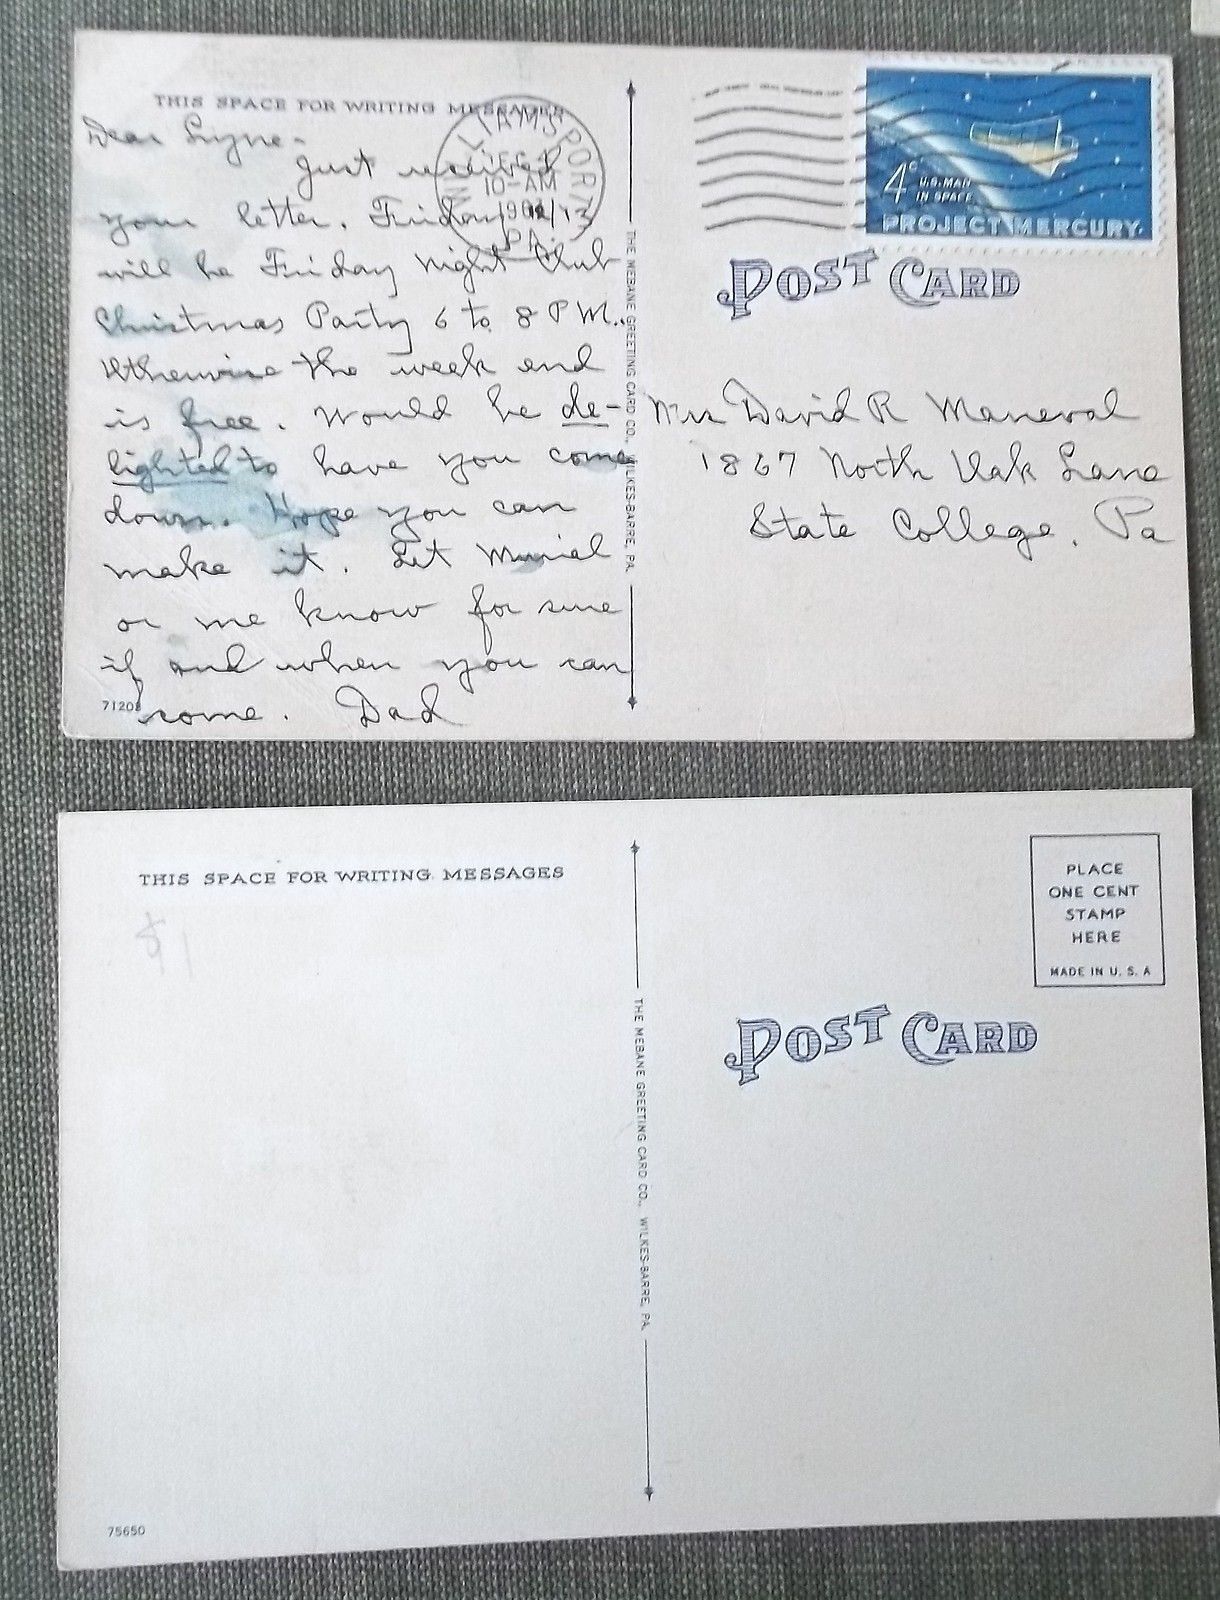 THIS SPACE FOR WRITING MESSAGES
Dear Lynne -
Just received
your letter. Friday 12/13
will be Friday Night Club
Christmas Party 6 to 8 P M.
Otherwise the week end
is free. Would be de-
lighted to have you come
down. Hope you can
make it. Let Muriel
or me know for sure
if and when you can
come. Dad
71208
WILLIAMSPORT
10-AM
PA.
THE MEBANE GREETING CARD CO., WILKES-BARRE, PA.
4c U.S. MAN
IN SPACE
PROJECT MERCURY
POST CARD
Mrs David R Maneval
1867 North Oak Lane
State College, Pa
THIS SPACE FOR WRITING MESSAGES
$1
THE MEBANE GREETING CARD CO., WILKES-BARRE, PA.
PLACE
ONE CENT
STAMP
HERE
MADE IN U. S. A
POST CARD
75650